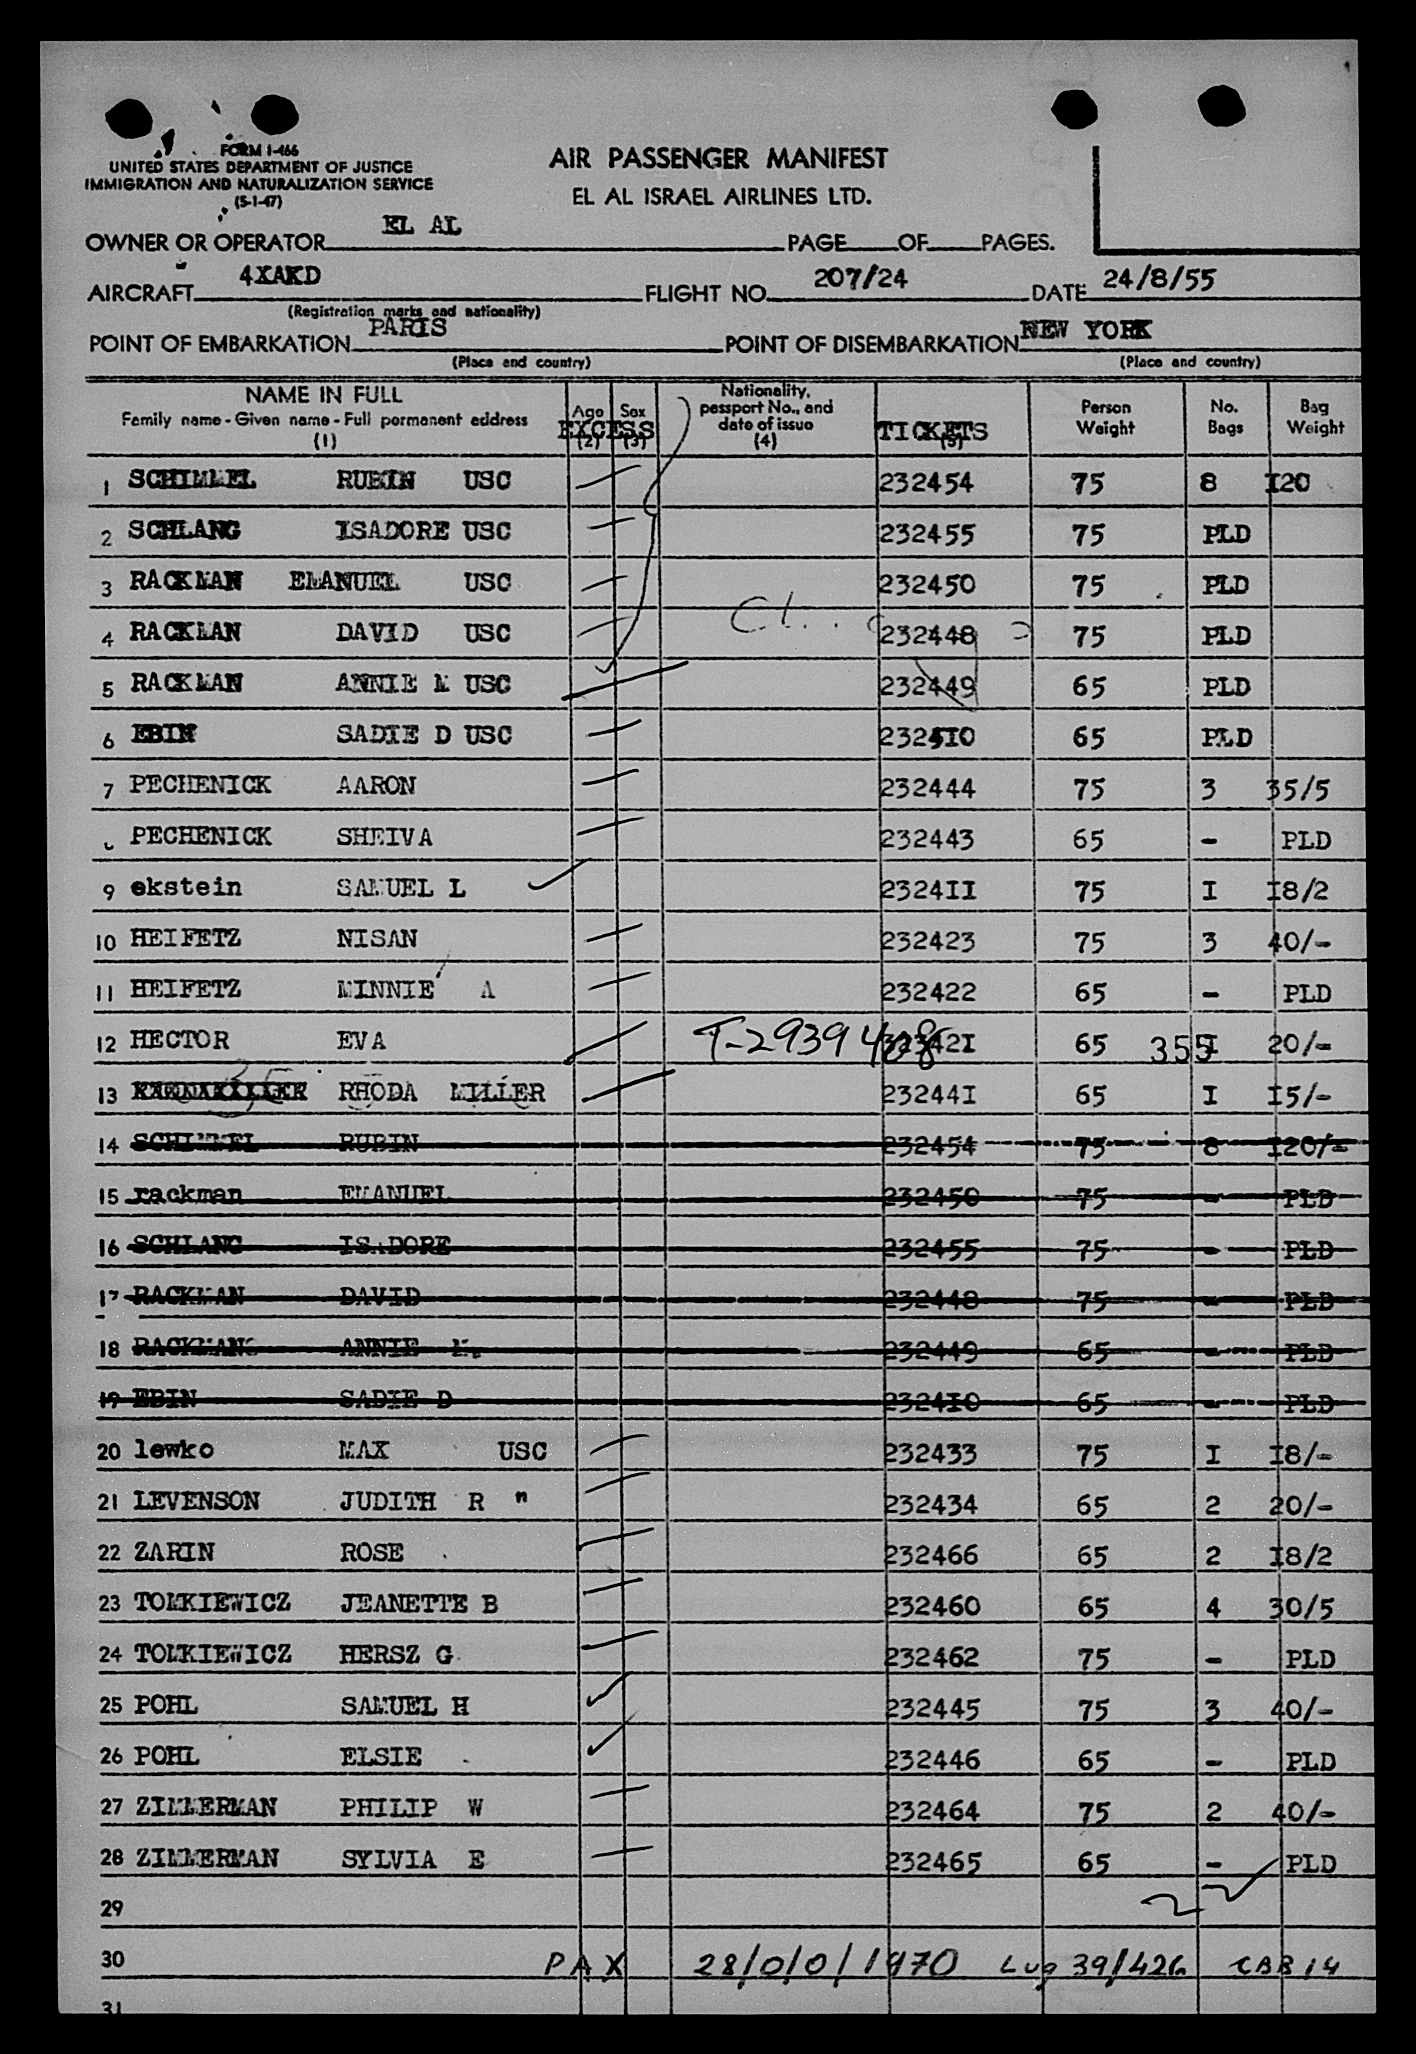 FORM I-466
UNITED STATES DEPARTMENT OF JUSTICE
IMMIGRATION AND NATURALIZATION SERVICE
(5-1-47)
AIR PASSENGER MANIFEST
EL AL ISRAEL AIRLINES LTD.
OWNER OR OPERATOR EL AL PAGE OF PAGES.
AIRCRAFT 4XAKD FLIGHT NO. 207/24 DATE 24/8/55
(Registration marks and nationality)
POINT OF EMBARKATION PARIS POINT OF DISEMBARKATION NEW YORK
(Place and country) (Place and country)
NAME IN FULL
Family name - Given name - Full permanent address
(1)
Age (2) Sex (3) EXCESS
Nationality, passport No., and date of issue (4)
TICKETS (5)
Person Weight
No. Bags
Bag Weight
1 SCHIMMEL RUBIN USC 232454 75 8 I20
2 SCHLANG ISADORE USC 232455 75 PLD
3 RACKMAN EMANUEL USC 232450 75 PLD
4 RACKMAN DAVID USC 232448 75 PLD
5 RACKMAN ANNIE M USC 232449 65 PLD
6 EBIN SADIE D USC 2324I0 65 PLD
7 PECHENICK AARON 232444 75 3 35/5
PECHENICK SHEIVA 232443 65 - PLD
9 ekstein SAMUEL L 2324II 75 I I8/2
10 HEIFETZ NISAN 232423 75 3 40/-
11 HEIFETZ MINNIE A 232422 65 - PLD
12 HECTOR EVA T-2939408 65 355 I 20/-
13 RHODA MILLER 23244I 65 I I5/-
14 SCHIMMEL RUBIN 232454 75 8 I20/-
15 rackman EMANUEL 232450 75 - PLD
16 SCHLANG ISADORE 232455 75 - PLD
17 RACKMAN DAVID 232448 75 - PLD
18 RACKMAN ANNIE M. 232449 65 - PLD
19 EBIN SADIE D 2324I0 65 - PLD
20 lewko MAX USC 232433 75 I I8/-
21 LEVENSON JUDITH R " 232434 65 2 20/-
22 ZARIN ROSE 232466 65 2 I8/2
23 TOMKIEWICZ JEANETTE B 232460 65 4 30/5
24 TOMKIEWICZ HERSZ G. 232462 75 - PLD
25 POHL SAMUEL H 232445 75 3 40/-
26 POHL ELSIE 232446 65 - PLD
27 ZIMMERMAN PHILIP W 232464 75 2 40/-
28 ZIMMERMAN SYLVIA E 232465 65 - PLD
29
30 PAX 28/0/0/1970 Lug 39/426 CAB 14
31